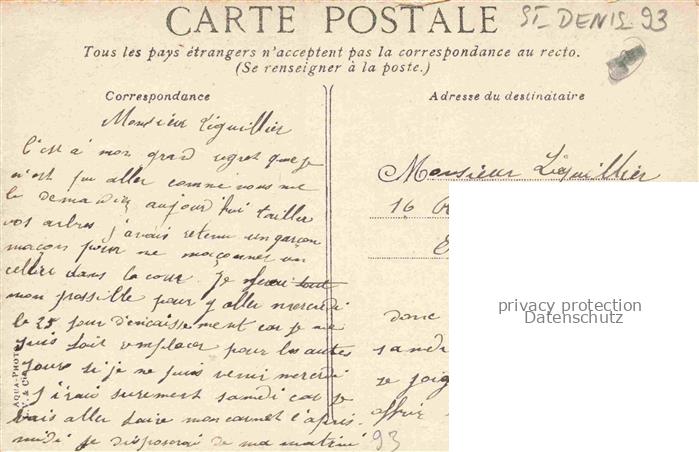 CARTE POSTALE
ST-DENIS 93
Tous les pays étrangers n'acceptent pas la correspondance au recto.
(Se renseigner à la poste.)
Correspondance
Adresse du destinataire
Monsieur Léguillier
C'est à mon grand regret que je
n'est pu aller comme vous me
le demandiez aujourd'hui tailler
vos arbres j'avais retenu un garçon
maçon pour me maçonner un
cellier dans la cour. Je ferai tout
mon possible pour y aller mercredi
le 25 jour d'encaissement car je me
suis fait remplacer pour les autres
jours si je ne puis venir mercredi
j'irais surement samdi car je
vais aller faire mon carnet l'après
midi je disposerai de ma matiné
93
AQUA-PHOTO
Monsieur Léguillier
16 R
E
donc
samdi
se joig
offrir
privacy protection
Datenschutz